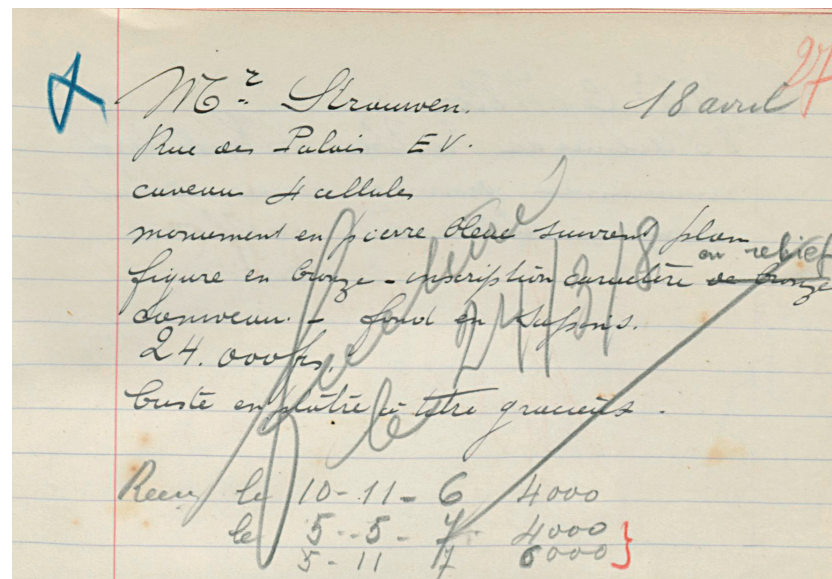 27
Mr Strouwen. 18 avril
Rue des Palais E V.
caveau 4 cellules
monument en pierre bleue suivant plan
en relief
figure en bronze - inscription caractère de bronze
- fond en
24.000 frs.
buste en plâtre à titre gracieux.
le 24/3/8
Reçu le 10-11-6 4000
le 5-5-7 4000
5-11 17 6000